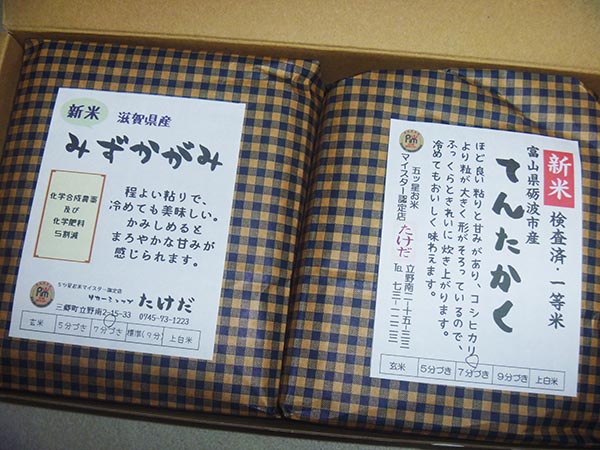 新米
滋賀県産
みずかがみ
程よい粘りで、
冷めても美味しい。
かみしめると
まろやかな甘みが
感じられます。
化学合成農薬
及び
化学肥料
5割減
5ツ星お米マイスター認定店
たけだ
三郷町立野南2-15-33 0745-73-1223
玄米 5分づき 7分づき 標準(9分) 上白米
新米 検査済・一等米
富山県砺波市産
てんたかく
ほど良い粘りと甘みがあり、コシヒカリ
より粒が大きく形がそろっているので、
ふっくらときれいに炊き上がります。
冷めてもおいしく味わえます。
五ッ星お米
マイスター認定店
たけだ
立野南二-十五-三三
℡ 七三-一二二三
玄米 5分づき 7分づき 9分づき 上白米